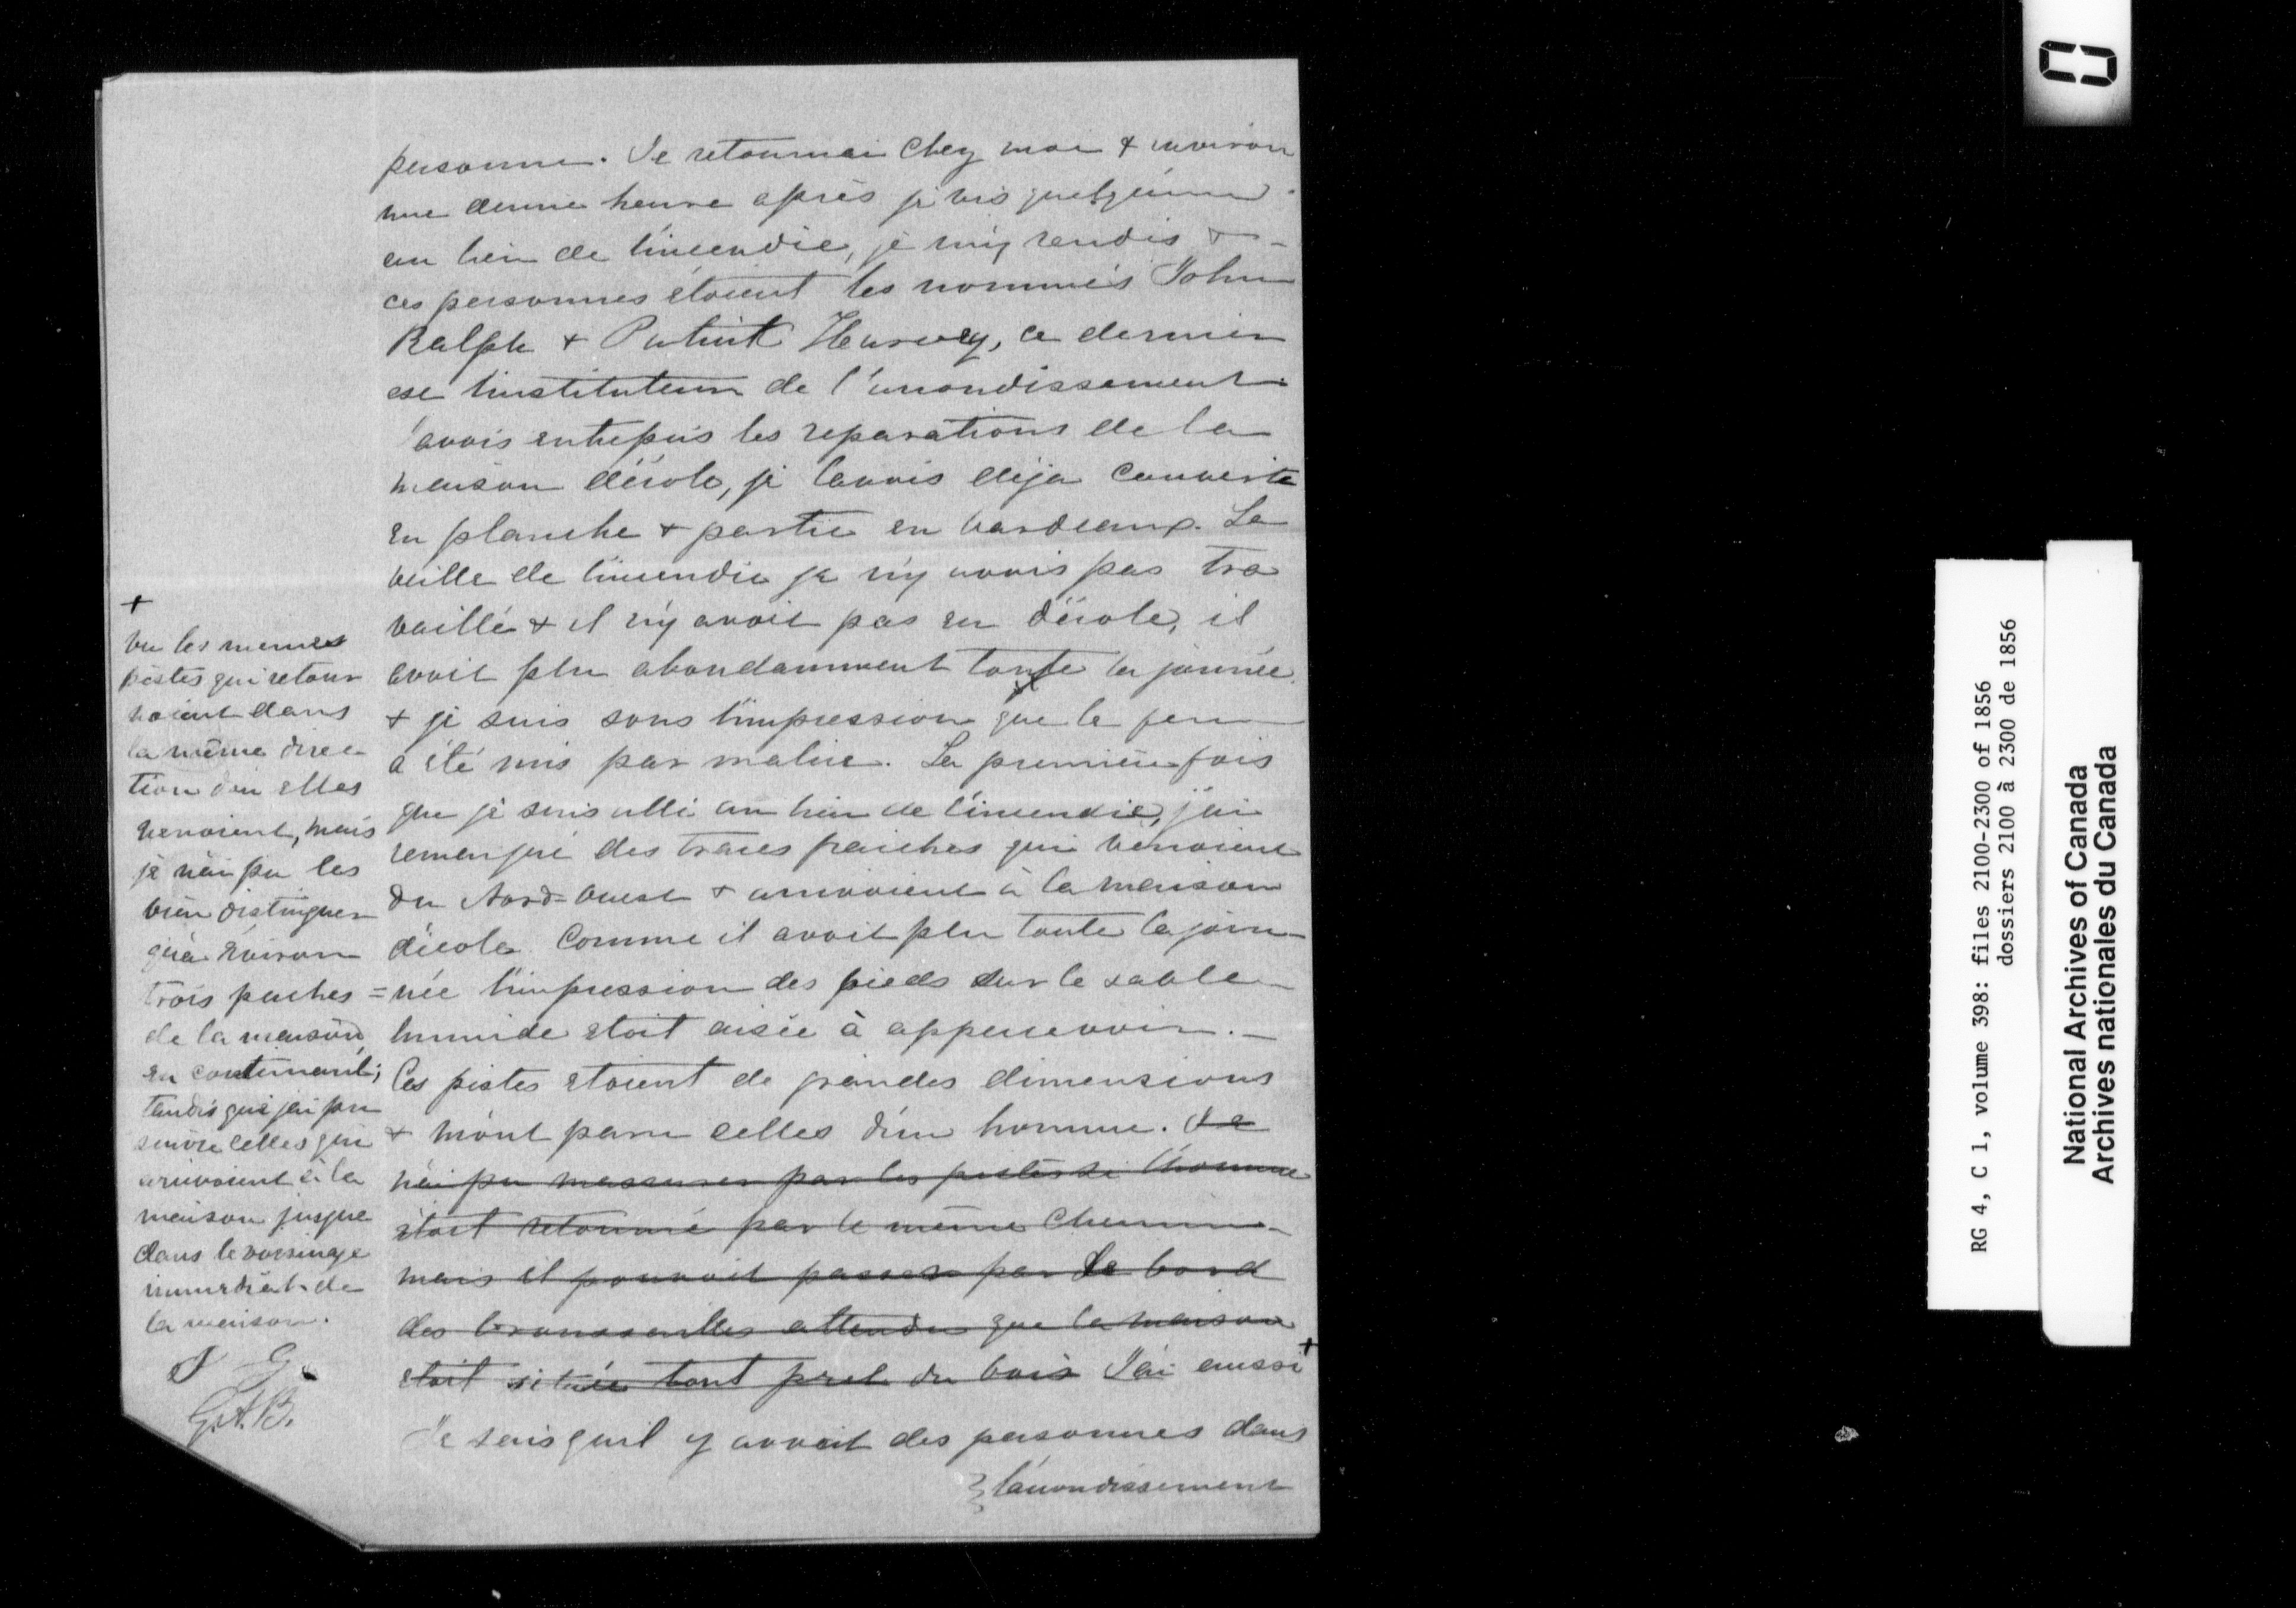 personne. Je retournai chez moi & environ
une demie heure après je vis quelqu'un
au lieu de l'incendie, je m'y rendis &
ces personnes étoient les nommés John
Ralph & Patrick Harvey, ce dernier
est l'instituteur de l'arrondissement.
J'avois entrepris les reparations de la
maison d'école, je l'avois déja couverte
en planche & partie en bardeaux. La
veille de l'incendie je n'y avois pas tra
vaillé & il n'y avoit pas eu d'école, il
avoit plu abondamment toute la journée
& je suis sous l'impression que le feu
a été mis par malice. La première fois
que je suis allé au lieu de l'incendie, j'ai
remarqué des traces fraiches qui venoient
du Nord-Ouest & arrivoient à la maison
d'école Comme il avoit plu toute la jour
=née l'impression des pieds sur le sable
humide étoit aisée à appercevoir. _
Ces pistes étoient de grandes dimensions
& m'ont paru celles d'un homme. Je
n'ai pu m'assurer par les pistes si l'homme
étoit retourné par le même chemin
mais il pouvoit passer par le bord
des broussailles attendu que la maison
étoit située tout pret du bois J'ai aussi +
Je sais qu'il y avoit des personnes dans
l'arrondissement
+
vu les memes
pistes qui retour
noient dans
la même direc
tion d'ou elles
venoient, mais
je n'ai pu les
bien distinguer
qu'à environ
trois perches
de la maison,
en continuant;
tandis que j'ai pu
suivre celles qui
arrivoient à la
maison jusque
dans le voisinage
immédiat de
la maison.
J G
G.A.B.
RG 4, C 1, volume 398: files 2100-2300 of 1856
dossiers 2100 à 2300 de 1856
National Archives of Canada
Archives nationales du Canada